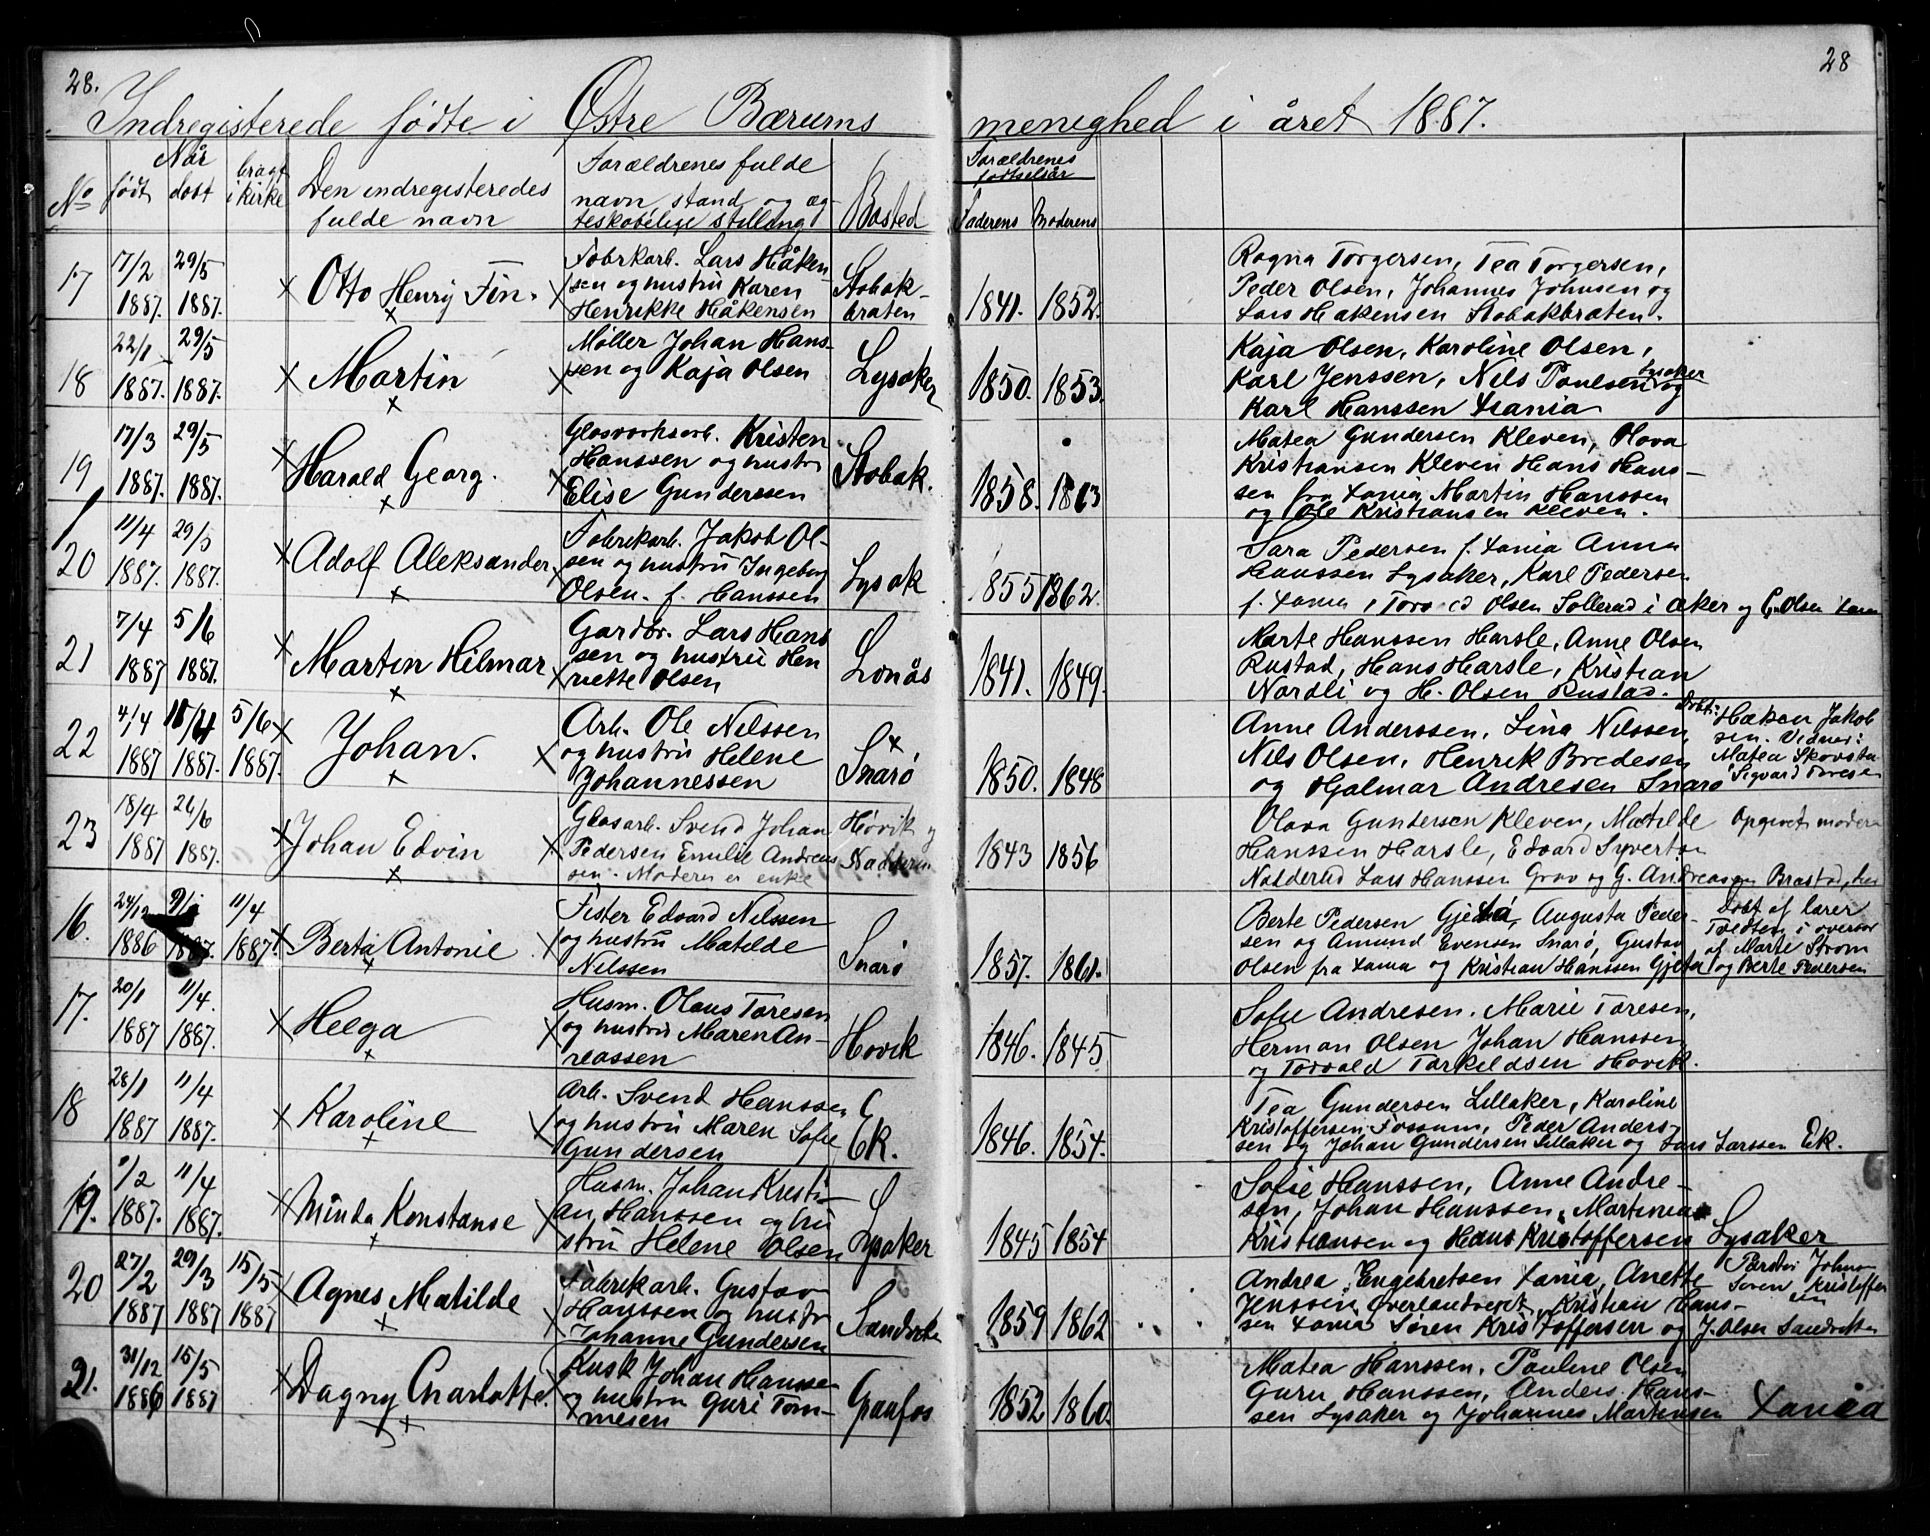 28.
28
Indregisterede fødte i Østre Bærums menighed i året 1887.
No
Når
født
døbt
bragt i kirke
Den indregisteredes
fulde navn
Forældrenes fulde
navn, stand og æg-
teskabelige stilling
Bosted
Forældrenes
fødselsår
Faderens
Moderens
17
17/2 29/5
1887. 1887.
Otto Henry Fin.
Fabrkarb. Lars Håken-
sen og hustru Karen
Henrikke Håkensen
Stabæk-
braten
1841. 1852.
Ragna Torgersen, Tea Torgersen,
Peder Olsen, Johannes Johnsen og
Lars Hakensen Stabakbraten.
18
22/1 29/5
1887. 1887.
Martin
Møller Johan Hans-
sen og Kaja Olsen
Lysaker
1850. 1853.
Kaja Olsen, Karoline Olsen,
Karl Jenssen, Nils Paulsen Lysaker og
Karl Hanssen Xania
19
17/3 29/5
1887. 1887.
Harald Georg.
Glasværksarb. Kristen
Hanssen og hustru
Elise Gunderssen
Stabak.
1858. 1863
Matea Gundersen Kleven, Olava
Kristiansen Kleven Hans Hans-
sen fra Xania, Martin Hanssen
og Ole Kristiansen Kleven.
20
11/4 29/5
1887. 1887.
Adolf Aleksander
Fabrikarb. Jakob Ol-
sen og hustru Ingeborg
Olsen. f. Hanssen
Lysak
1855 1862.
Sara Pedersen f. Xania Anna
Hanssen Lysaker, Karl Pedersen
f. Xania, Olsen Sollerud i Aker og G. Olsen Xania
21
7/4 5/6
1887 1887.
Martin Hilmar
Gardbr. Lars Hans
sen og hustru Hen
riette Olsen
Lonås
1841. 1849.
Marte Hanssen Harsle, Anne Olsen
Rustad, Hans Harsle, Kristian
Nordli og H. Olsen Rustad.
22
4/4 11/4 5/6
1887 1887. 1887.
Johan.
Arb. Ole Nilssen
og hustru Helene
Johannessen
Snarø
1850. 1848
Anne Anderssen, Lina Nilssen,
Nils Olsen, Henrik Bredesen
og Hjalmar Andresen Snarø
Døbt: Hakon Jakob
sen. Vidner:
Matea
Sigvard Toresen
23
18/4 26/6
1887 1887.
Johan Edvin
Glasarb. Svend Johan
Pedersen Emilie Andreas
sen. Moderen er enke
Høvik og
Nadderud
1843 1856
Olava Gundersen Kleven, Matilde
Hanssen Harsle, Edvard Syvertsen
Nadderud Lars Hanssen Grav og G. Andreassen Brastad,
Opgivet moderen
16.
24/12 9/1 11/4
1886 1887. 1887.
Berta Antonie
Fisker Edvard Nilssen
og hustru Matilde
Nilssen
Snarø
1857. 1861.
Berte Pedersen Gjetå, Augusta Peder-
sen og Amund Evensen Snarø, Gustav
Olsen fra Xania og Kristian Hanssen Gjeta
Døbt af lærer
Tvedten i overvær
af Marte Strøm
og Berte Pedersen
17.
20/1 11/4.
1887 1887.
Helga
Husm. Olaus Toresen
og hustru Maren An-
reassen
Hovik
1846. 1845
Sofie Andresen, Marie Toresen,
Herman Olsen Johan Hanssen
og Torvald Torkildsen Hovik.
18
28/1 11/4
1887 1887.
Karoline
Arb. Svend Hanssen
og hustru Maren Sofie
Gundersen
Ek.
1846. 1854.
Tea Gundersen Lillaker, Karoline
Kristoffersen Fossum, Peder Anders-
sen og Johan Gundersen Lillaker og Lars Larssen Ek.
19.
1/2 11/4
1887. 1887.
Minda Konstanse
Husm. Johan Kristi-
an Hanssen og hu
stru Helene Olsen
Lysaker
1845 1854
Sofie Hanssen, Anne Andre-
sen, Johan Hanssen, Martinius
Kristiansen og Hans Kristoffersen Lysaker
20
27/2 29/3 15/5
1887 1887 1887
Agnes Matilde
Fabrikarb. Gustav
Hanssen og hustru
Johanne Gundersen
Sandvika
1859 1862
Andrea Engebretsen Xania, Anette
Jenssen Kristian Hans-
sen Xania Søren Kristoffersen og J. Olsen Sandviken
Johnsen
Søren Kristoffer
sen
21.
31/12 15/5
1886 1887
Dagny Charlotte.
Kusk Johan Hansse-
og hustru Guri Tom-
mesen
Granfos
1852 1860.
Matea Hanssen, Pauline Olsen
Guru Hanssen, Anders Hans-
sen Lysaker og Johannes Martinsen Xania